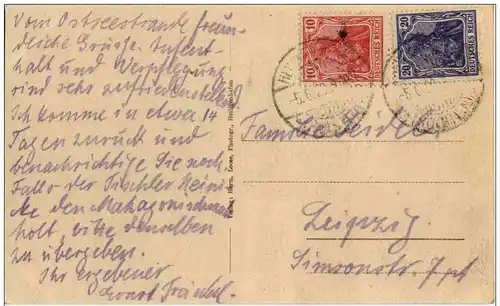 Vom Ostseestrande freun-
dliche Grüsse. Aufent-
halt und Verpflegung
sind sehr zufriedenstellend
Ich komme in etwa 14
Tagen zurück und
benachrichtige Sie noch
Falls der Tischler Heini-
cke den Mahagonischrank
holt, bitte denselben
zu übergeben.
Ihr ergebener
Ernst
10 DEUTSCHES REICH 10
20 DEUTSCHES REICH 20
Familie Seidel
Leipzig
Simsonstr. 7